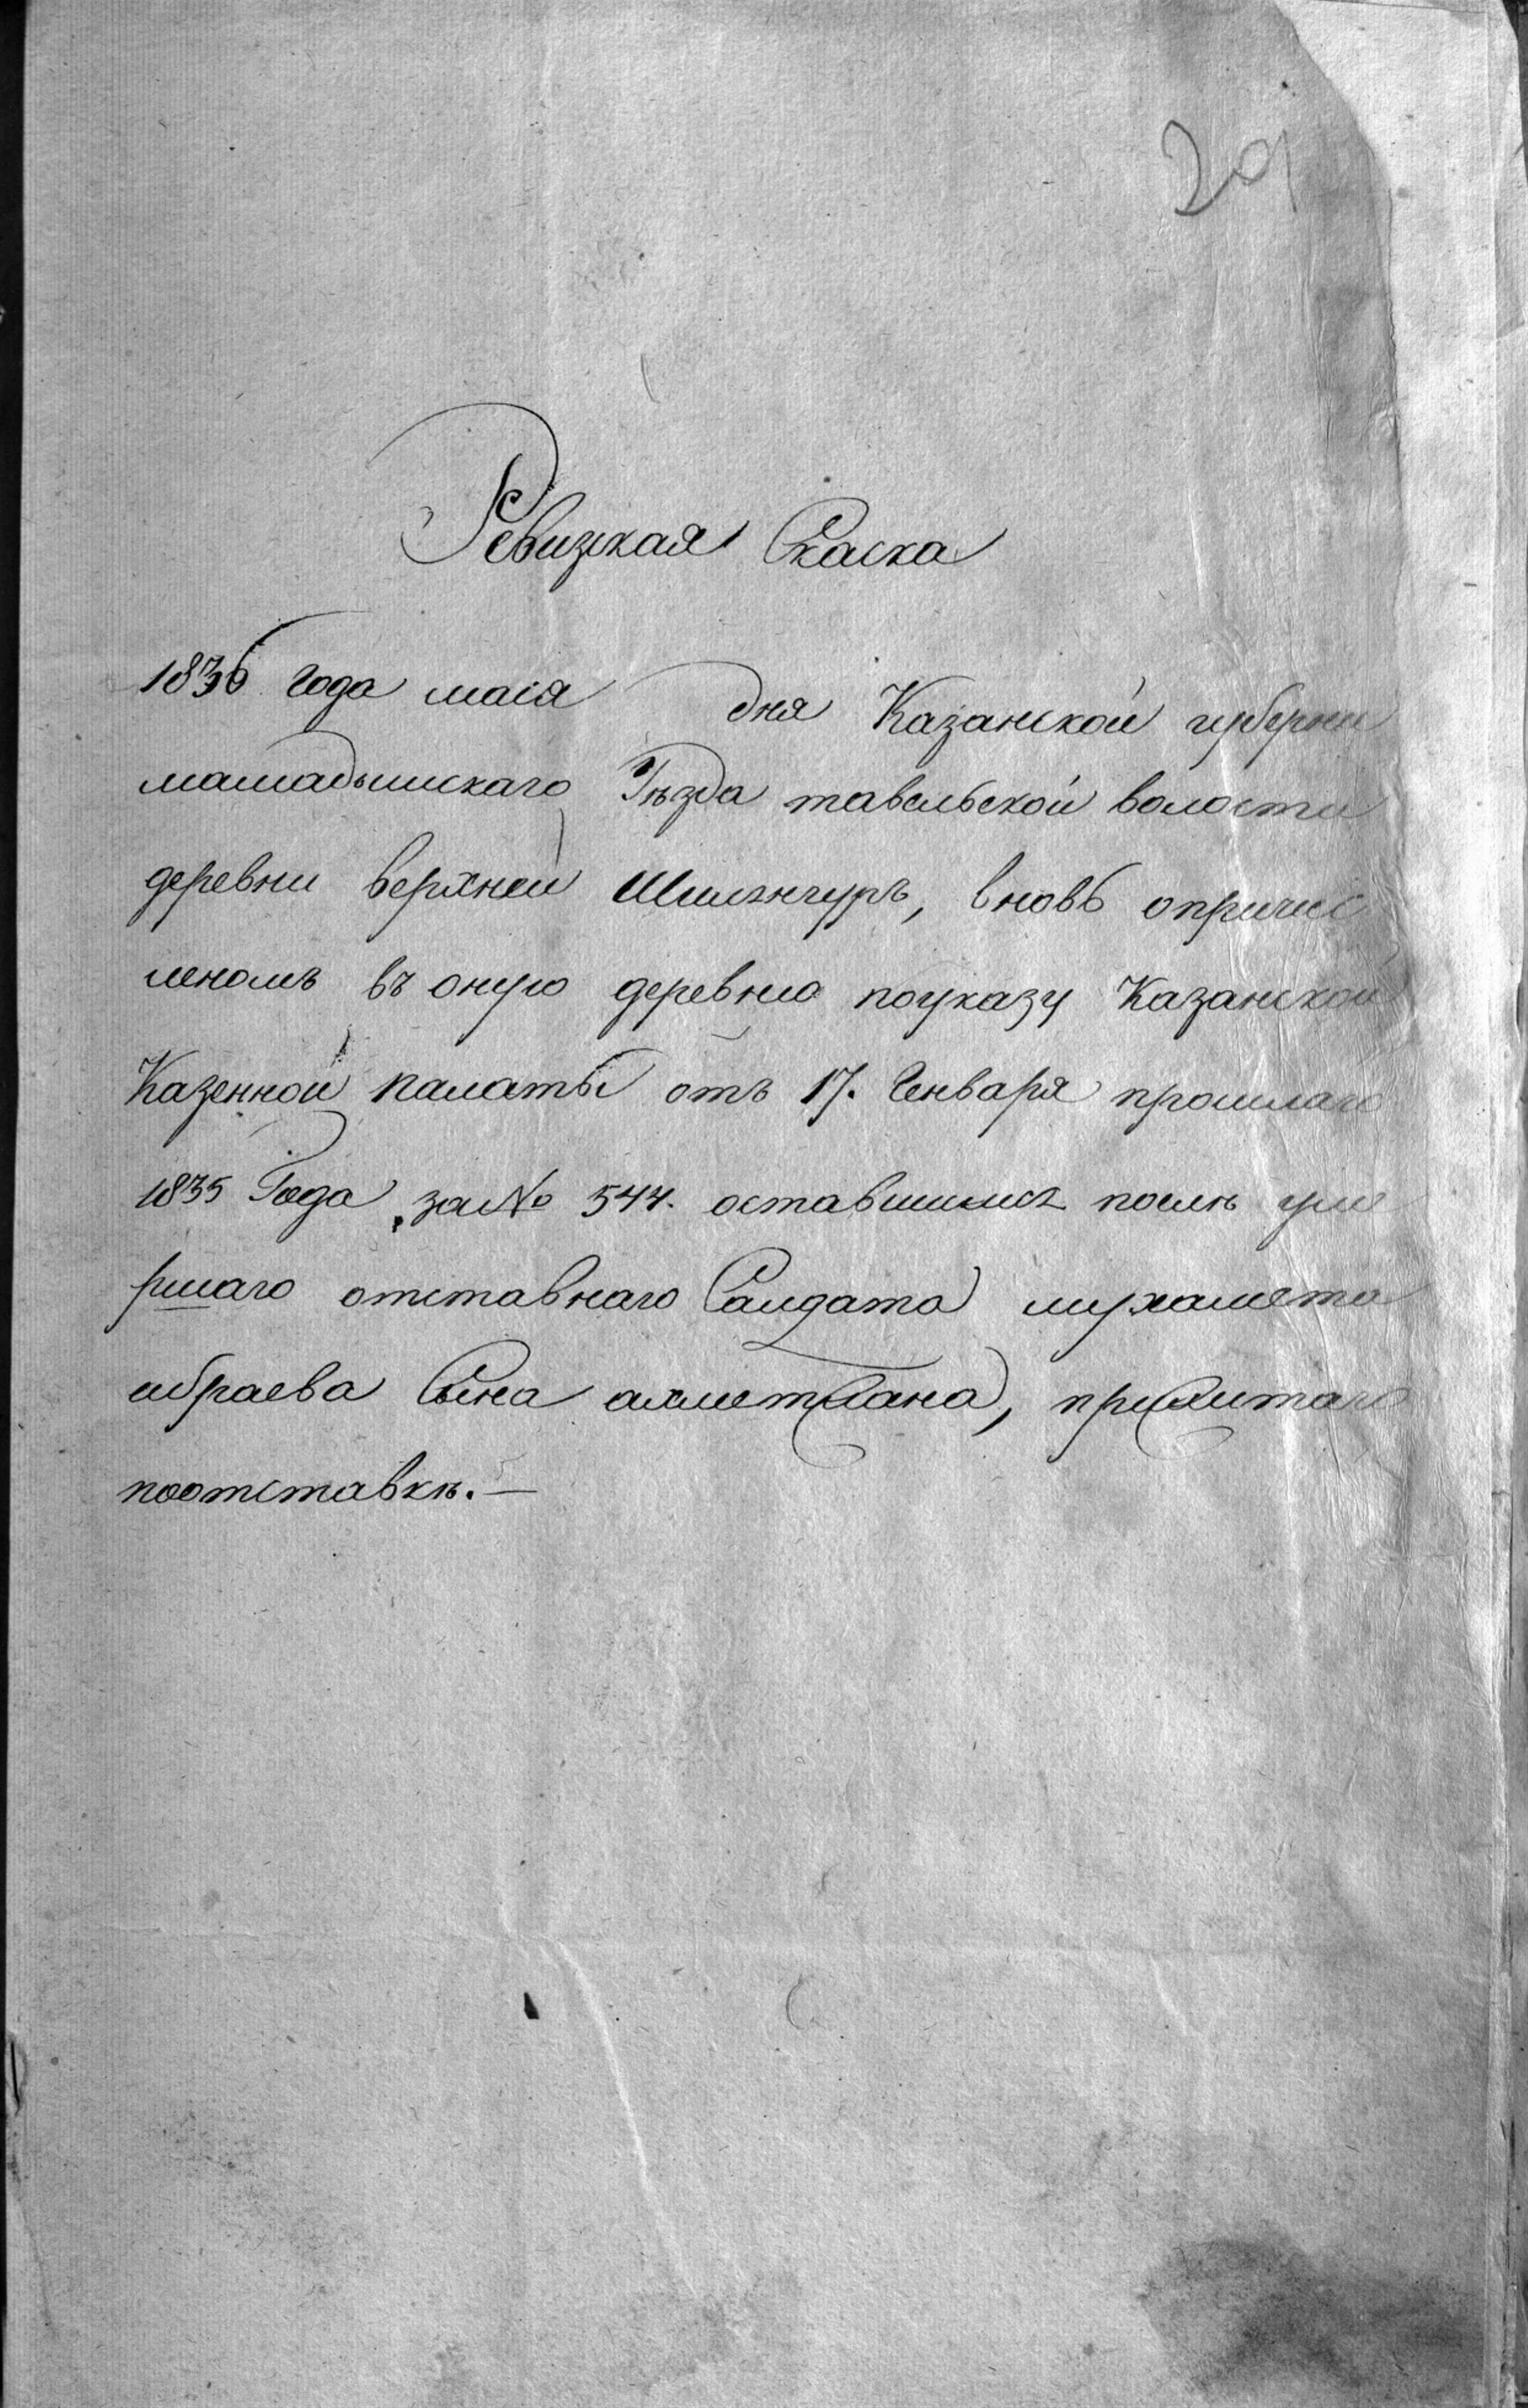 29
Ревизкая Скаска
1836 года маія дня Казанской губерни
мамадышскаго Уѣзда тавельской волости
деревни верхней Шингнчуръ, вновь опричис
леномъ въ оную деревню поуказу Казанской
Казенной палаты отъ 17. Генваря прошлаго
1835 Года за № 544. оставшимся послѣ уме
ршаго отставнаго Салдата мухамета
ибраева Сына ахметжана, прижитаго
поотставкѣ. —